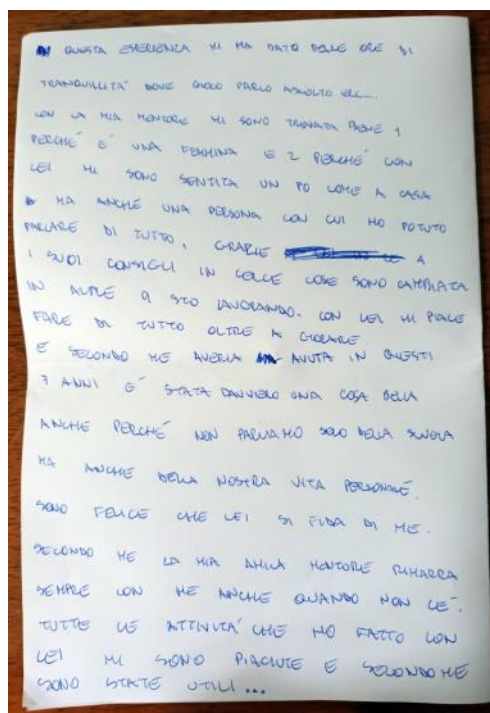 QUESTA ESPERIENZA MI HA DATO DELLE ORE DI
TRANQUILLITA' DOVE GIOCO PARLO ASCOLTO ECC....
CON LA MIA MENTORE MI SONO TROVATA BENE 1
PERCHE' E' UNA FEMMINA E 2 PERCHE' CON
LEI MI SONO SENTITA UN PO COME A CASA
MA ANCHE UNA PERSONA CON CUI HO POTUTO
PARLARE DI TUTTO, GRAZIE A
I SUOI CONSIGLI IN COSE SONO CAMBIATA
IN ALTRE CI STO LAVORANDO. CON LEI MI PIACE
FARE DI TUTTO OLTRE A GIOCARE
E SECONDO ME AVERLA AVUTA IN QUESTI
3 ANNI E' STATA DAVVERO UNA COSA BELLA
ANCHE PERCHE' NON PARLIAMO SOLO DELLA SCUOLA
MA ANCHE DELLA NOSTRA VITA PERSONALE.
SONO FELICE CHE LEI SI FIDA DI ME.
SECONDO ME LA MIA AMICA MENTORE RIMARRA
SEMPRE CON ME ANCHE QUANDO NON CE'.
TUTTE LE ATTIVITA' CHE HO FATTO CON
LEI MI SONO PIACIUTE E SECONDO ME
SONO STATE UTILI...